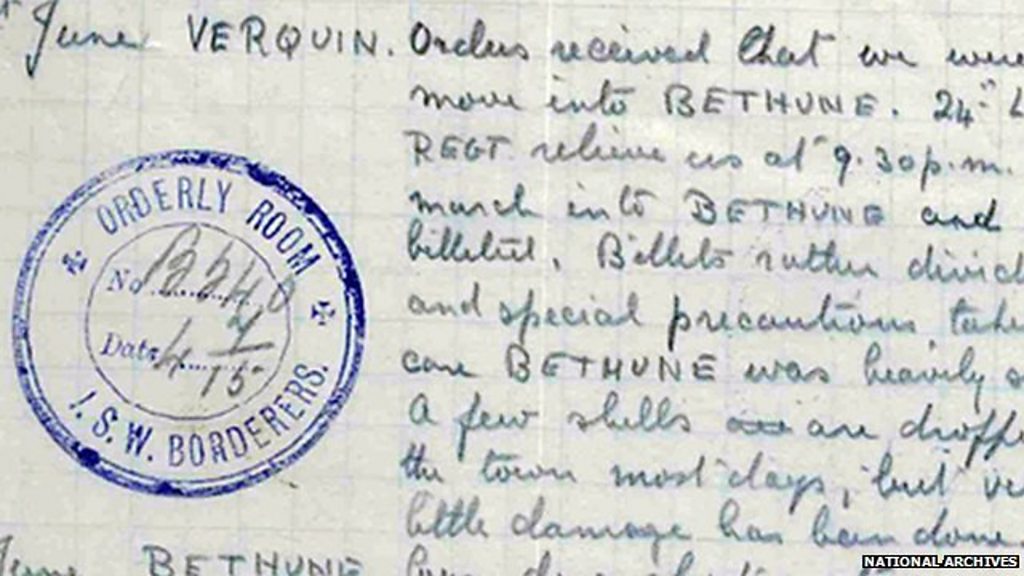 June VERQUIN. Orders received that we were
move into BETHUNE. 24th L
REGT relieve us at 9.30 p.m.
march into BETHUNE and
billeted. Billets rather divid
and special precautions take
case BETHUNE was heavily s
A few shells are are droppe
the town most days, but ve
little damage has been done.
June BETHUNE
ORDERLY ROOM
No B240
Date 4
7
15
1. S. W. BORDERERS.
NATIONAL ARCHIVES